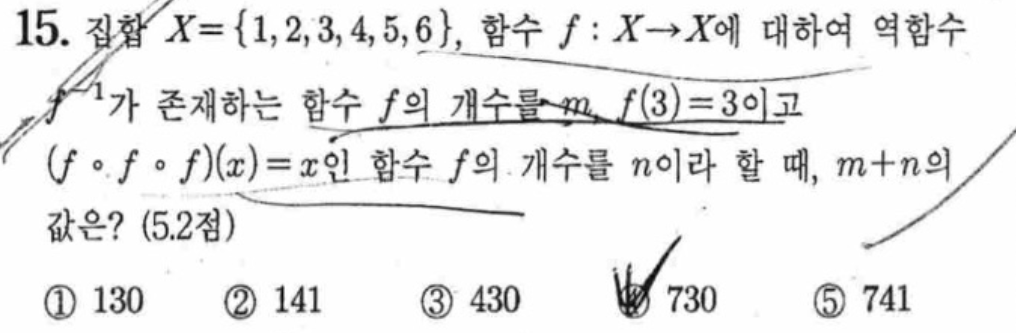 15. 집합 X={1, 2, 3, 4, 5, 6}, 함수 f : X→X에 대하여 역함수
f⁻¹가 존재하는 함수 f의 개수를 m, f(3)=3이고
(f∘f∘f)(x)=x인 함수 f의 개수를 n이라 할 때, m+n의
값은? (5.2점)
① 130 ② 141 ③ 430 ④ 730 ⑤ 741